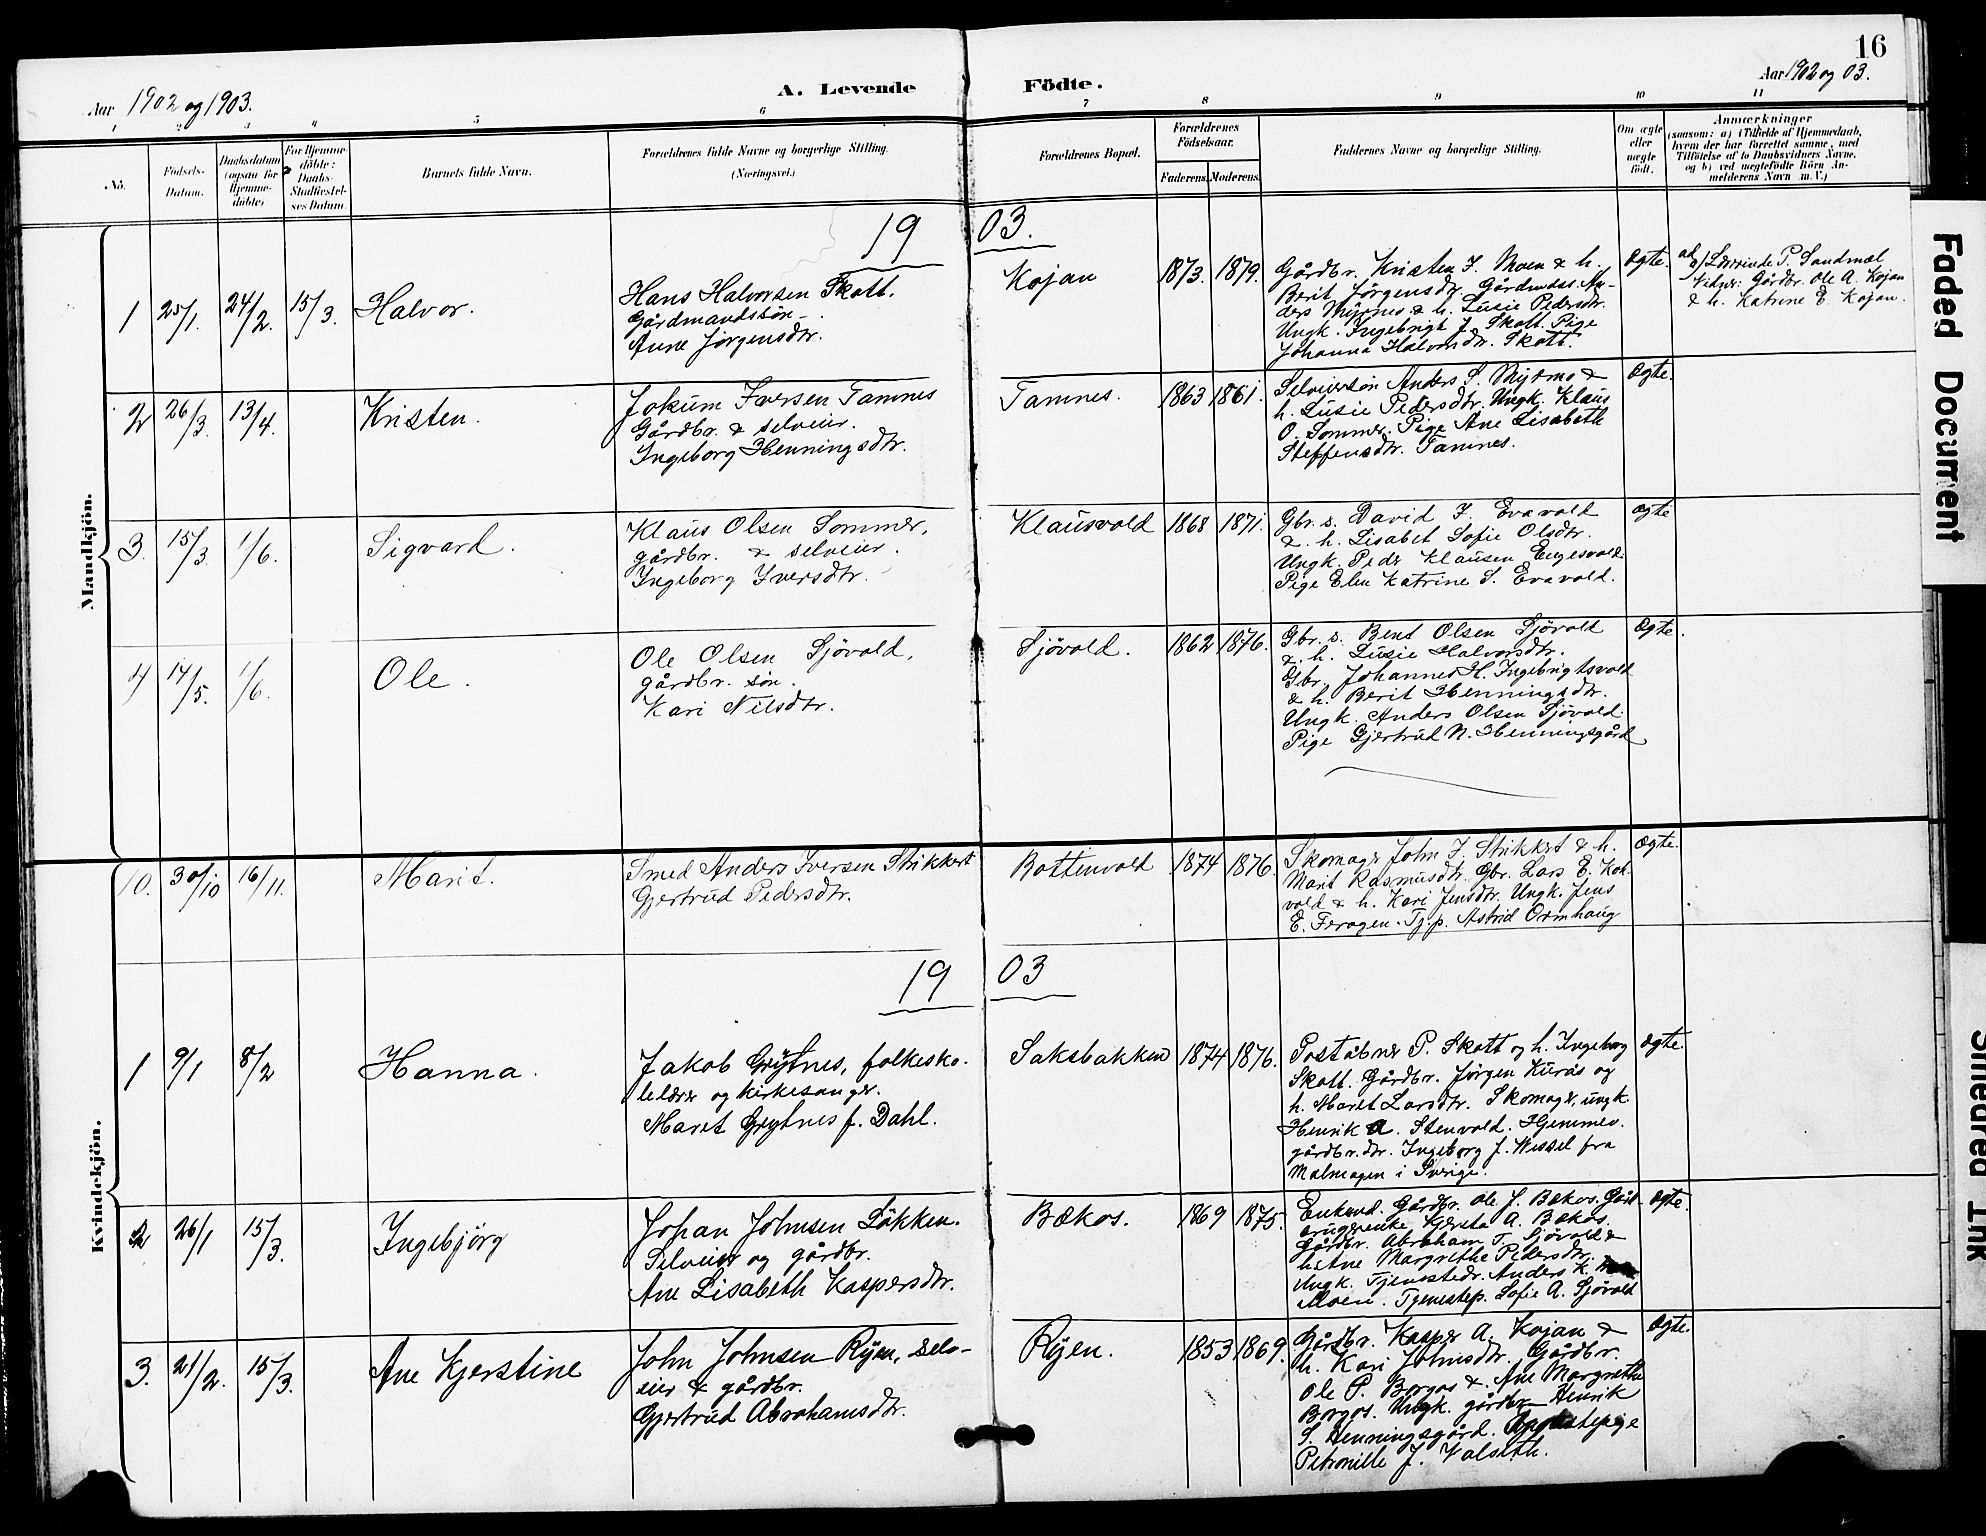 16
Aar 1902 og 1903.
A. Levende Födte.
Aar 1902 og 03.
1 2 3 4 5 6 7 8 9 10 11
No.
Födsels-Datum.
Daabsdatum (ogsaa for Hjemme-döbte)
For Hjemme-döbte: Daabs-Stadfæstel-ses Datum.
Barnets fulde Navn.
Forældrenes fulde Navne og borgerlige Stilling.
(Næringsvei.)
Forældrenes Bopæl.
Forældrenes Födselsaar.
Faderens. Moderens.
Faddernes Navne og borgerlige Stilling.
Om ægte eller uægte födt.
Anmærkninger
(saasom: a) i Tilfælde af Hjemmedaab,
hvem der har forrettet samme, med
Tilföielse af to Daabsvidners Navne,
og b) ved uægtefödte Börn An-
melderens Navn m. V.)
Mandkjön.
1903.
1 25/1. 24/2. 15/3. Halvor.
Hans Halvorsen Skott.
Gårdmandssön.
Anne Jörgensdtr.
Kojan 1873. 1879.
Gårdbr. Kristen J. Moen & h.
Berit Jörgensdtr. Gårdmdss. An-
ders Myrmo & h. Lusie Pedersdtr.
Ungk. Ingebrigt J. Skott. Pige
Johanna Halvorsdtr. Skott.
Ægte.
ad a) Lærerinde P. Sandmæl
Vidner: Gårdbr. Ole A. Kojan
& h. Katrine E. Kojan.
2 26/3. 13/4. Kristen.
Jokum Iversen Tamnes
Gårdbr. & selveier.
Ingeborg Henningsdtr.
Tamnes. 1863 1861.
Selveiersön Anders S. Myrmo &
h. Lusie Pedersdtr. Ungk. Klaus
O. Sommer. Pige Ane Lisabeth
Steffensdtr. Tamnes.
Ægte.
3. 15/3. 1/6. Sigvard.
Klaus Olsen Sommer,
gårdbr. & selveier.
Ingeborg Iversdtr.
Klausvold 1868 1871.
Gbr. s. David J. Evavold
& h. Lisabet Sofie Olsdtr.
Ungk. Peder Klausen Engesvold.
Pige Elen Katrine S. Evavold.
Ægte
4 14/5. 1/6. Ole.
Ole Olsen Sjövold,
gårdbr. sön.
Kari Nilsdtr.
Sjövold. 1862 1876.
Gbr. s. Bent Olsen Sjövold
& h. Lusie Halvorsdtr.
Gbr. Johannes H. Ingebrigtsvold
& h. Berit Henningsdtr.
Ungk. Anders Olsen Sjövold.
Pige Gjertrud N. Henningsgård
Ægte.
Kvindekjön.
10. 30/10 16/11. Marit.
Smed Anders Iversen Strikkert
Gjertrud Pedersdtr.
Bottenvold 1874 1876.
Skomager John J. Strikkert & h.
Marit Rasmusdtr. Gbr. Lars E. Kot-
vold & h. Kari Jensdtr. Ungk. Jens
E. Feragen. Tj.p. Astrid Ormhaug
Ægte.
1903
1 9/1 8/2 Hanna.
Jakob Grytnes, folkesko-
lelærer og kirkesanger.
Maret Grytnes f. Dahl.
Saksbakken 1874 1876.
Poståbner P. Skott og h. Ingeborg
Skott. Gårdbr. Jörgen Kurås og
h. Maret Larsdtr. Skomager, ungk.
Henrik A. Stenvold. Hjemmev.
gårdbr. dtr. Ingeborg J. Wessel fra
Malmagen i Sverige.
Ægte.
2 26/1 15/3. Ingebjörg
Johan Johnsen Lökken.
Selveier og gårdbr.
Ane Lisabeth Kaspersdtr.
Bækos. 1869 1875.
Enkemd. Gårdbr. Ole J. Bækos. Gård-
brugerenke Kjersta A. Bækos.
Gårdbr. Abraham T. Sjövold &
h. Ane Margrethe Pedersdtr.
Ungk. Tjenestedr. Anders K.
Moen. Tjenestep. Sofie A. Sjövold
Ægte.
3. 21/2. 15/3. Ane Kjerstine
John Johnsen Ryen, sel-
eier & gårdbr.
Gjertrud Abrahamsdtr.
Ryen. 1853 1869.
Gårdbr. Kasper A. Kojan &
h. Kari Johnsdtr. Gårdbr.
Ole P. Borgos & Ane Margrethe
Borgos. Ungk. gårdbr. Henrik
S. Henningsgård. Tjenestepige
Petronille J. Valseth.
Ægte.
Faded Document
Smeared Ink